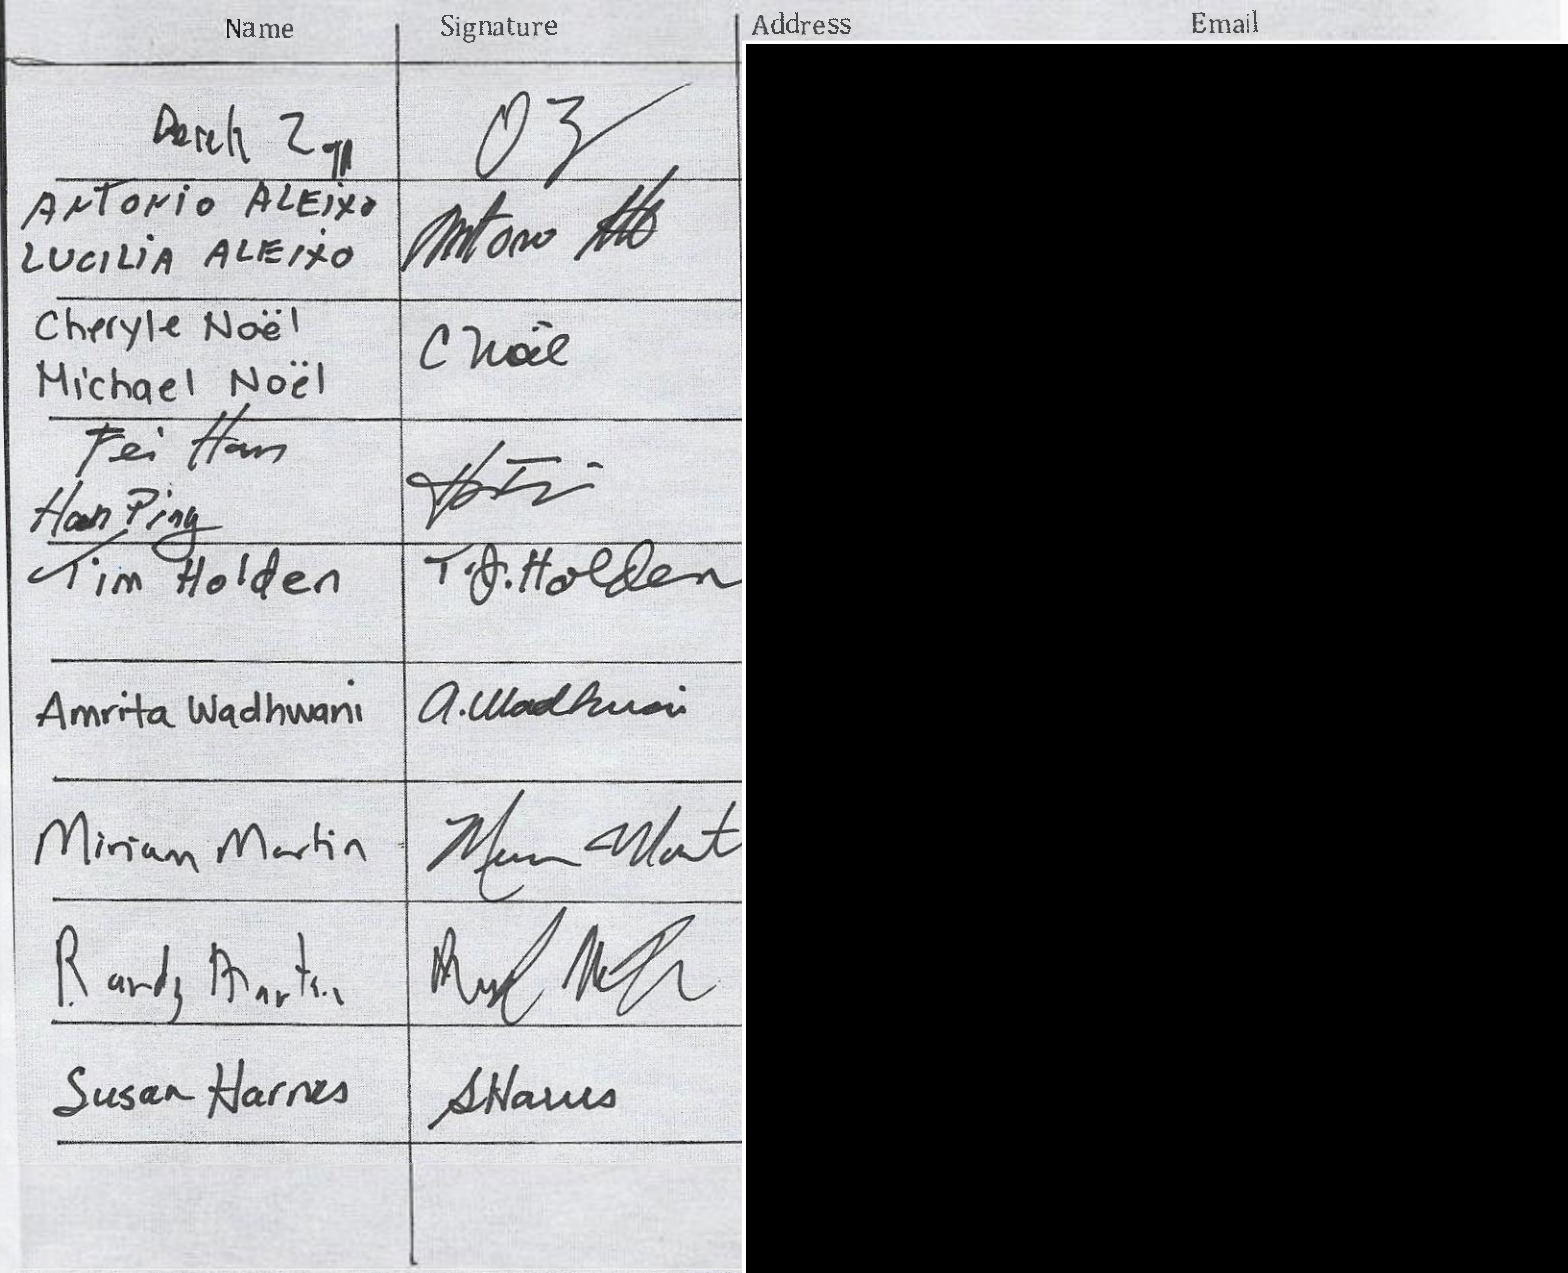 Name Signature Address Email
Derek
ANTONIO ALEIXO
LUCILIA ALEIXO Antono
Cheryle Noël
Michael Noël C Noël
Fei Han
Han Ping
Tim Holden T.J. Holden
Amrita Wadhwani A. Wadhwani
Miriam Martin
Randy Martin
Susan Harnes